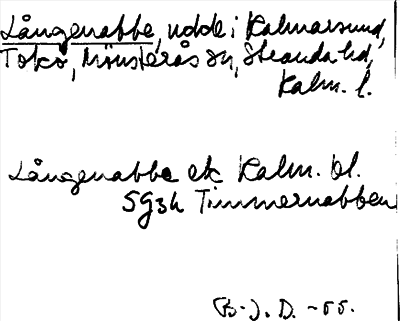 Långenabbe, udde i Kalmarsund,
Tokö, Mönsterås sn, Stranda hd,
Kalm. l.
Långenabbe ek Kalm. bl.
5g3h Timmernabben
B. J. D. -55.